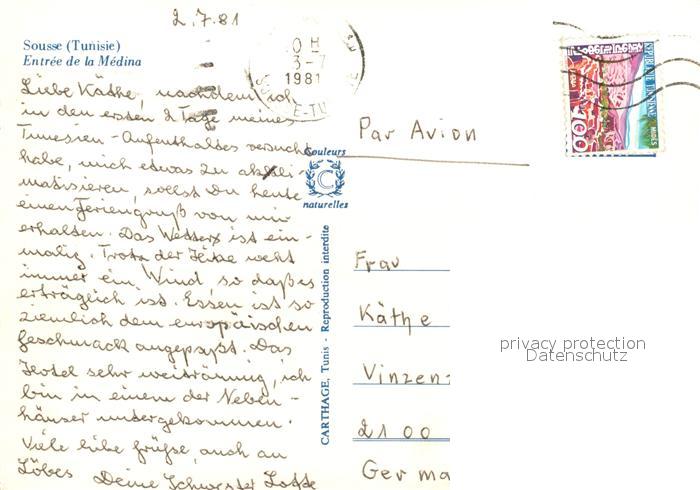 2.7.81
Sousse (Tunisie)
Entrée de la Médina
Liebe Käthe, nachdem ich
in den ersten 2 Tage meines
Tunesien-Aufenthaltes versucht
habe, mich etwas zu akkli-
matisieren, sollst Du heute
einen Feriengruß von mir
erhalten. Das Wetter ist ein-
malig. Trotz der Hitze weht
immer ein Wind, so daß es
erträglich ist. Essen ist so
ziemlich dem europäischen
Geschmack angepaßt. Das
Hotel sehr weiträumig, ich
bin in einem der Neben-
häuser untergekommen.
Viele liebe Grüße, auch an
Löbes Deine Schwester Lotte
3-7
1981
Par Avion
Couleurs
C
naturelles
CARTHAGE, Tunis - Reproduction interdite
REPUBLIQUE TUNISIENNE
100
Frau
Käthe
Vinzen
2100
Germa
privacy protection
Datenschutz